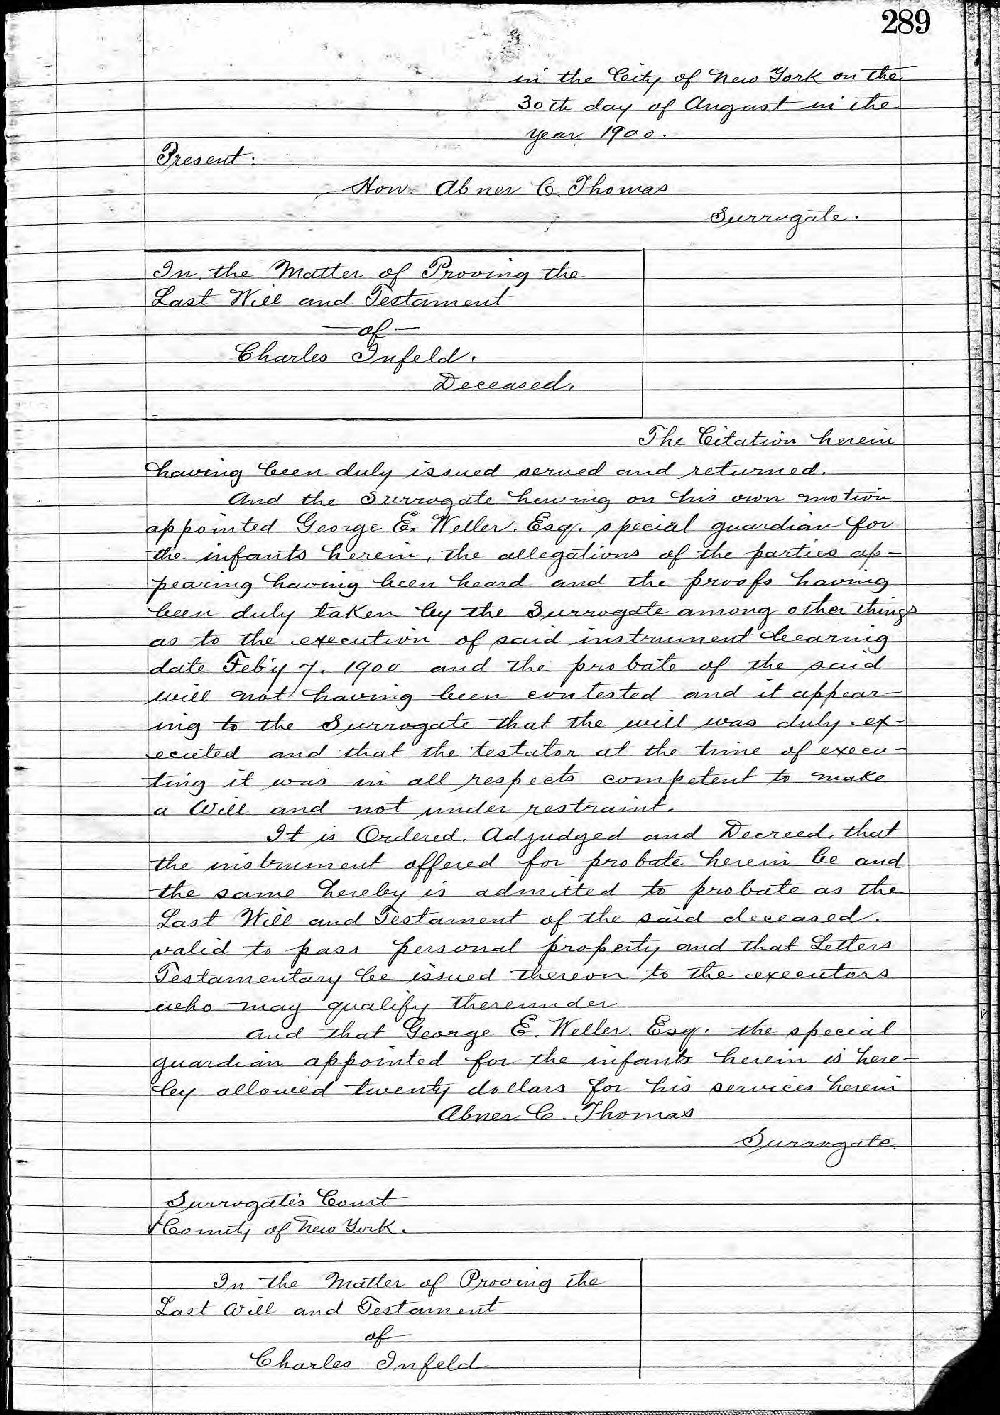 289
in the City of New York on the
30th day of August in the
year 1900.
Present:
Hon. Abner C. Thomas
Surrogate.
In the Matter of Proving the
Last Will and Testament
—of—
Charles Infeld.
Deceased.
The Citation herein
having been duly issued served and returned.
And the Surrogate having on his own motion
appointed George E. Weller, Esq. special guardian for
the infants herein, the allegations of the parties ap-
pearing having been heard and the proofs having
been duly taken by the Surrogate among other things
as to the execution of said instrument bearing
date Feb'y 7, 1900 and the probate of the said
will not having been contested and it appear-
ing to the Surrogate that the will was duly ex-
ecuted and that the testator at the time of execu-
ting it was in all respects competent to make
a Will and not under restraint.
It is Ordered, Adjudged and Decreed, that
the instrument offered for probate herein be and
the same hereby is admitted to probate as the
Last Will and Testament of the said deceased.
valid to pass personal property and that Letters
Testamentary be issued thereon to the executors
who may qualify thereunder
And that George E. Weller, Esq. the special
guardian appointed for the infants herein is here-
by allowed twenty dollars for his services herein
Abner C. Thomas
Surrogate
Surrogate's Court
County of New York.
In the Matter of Proving the
Last Will and Testament
of
Charles Infeld